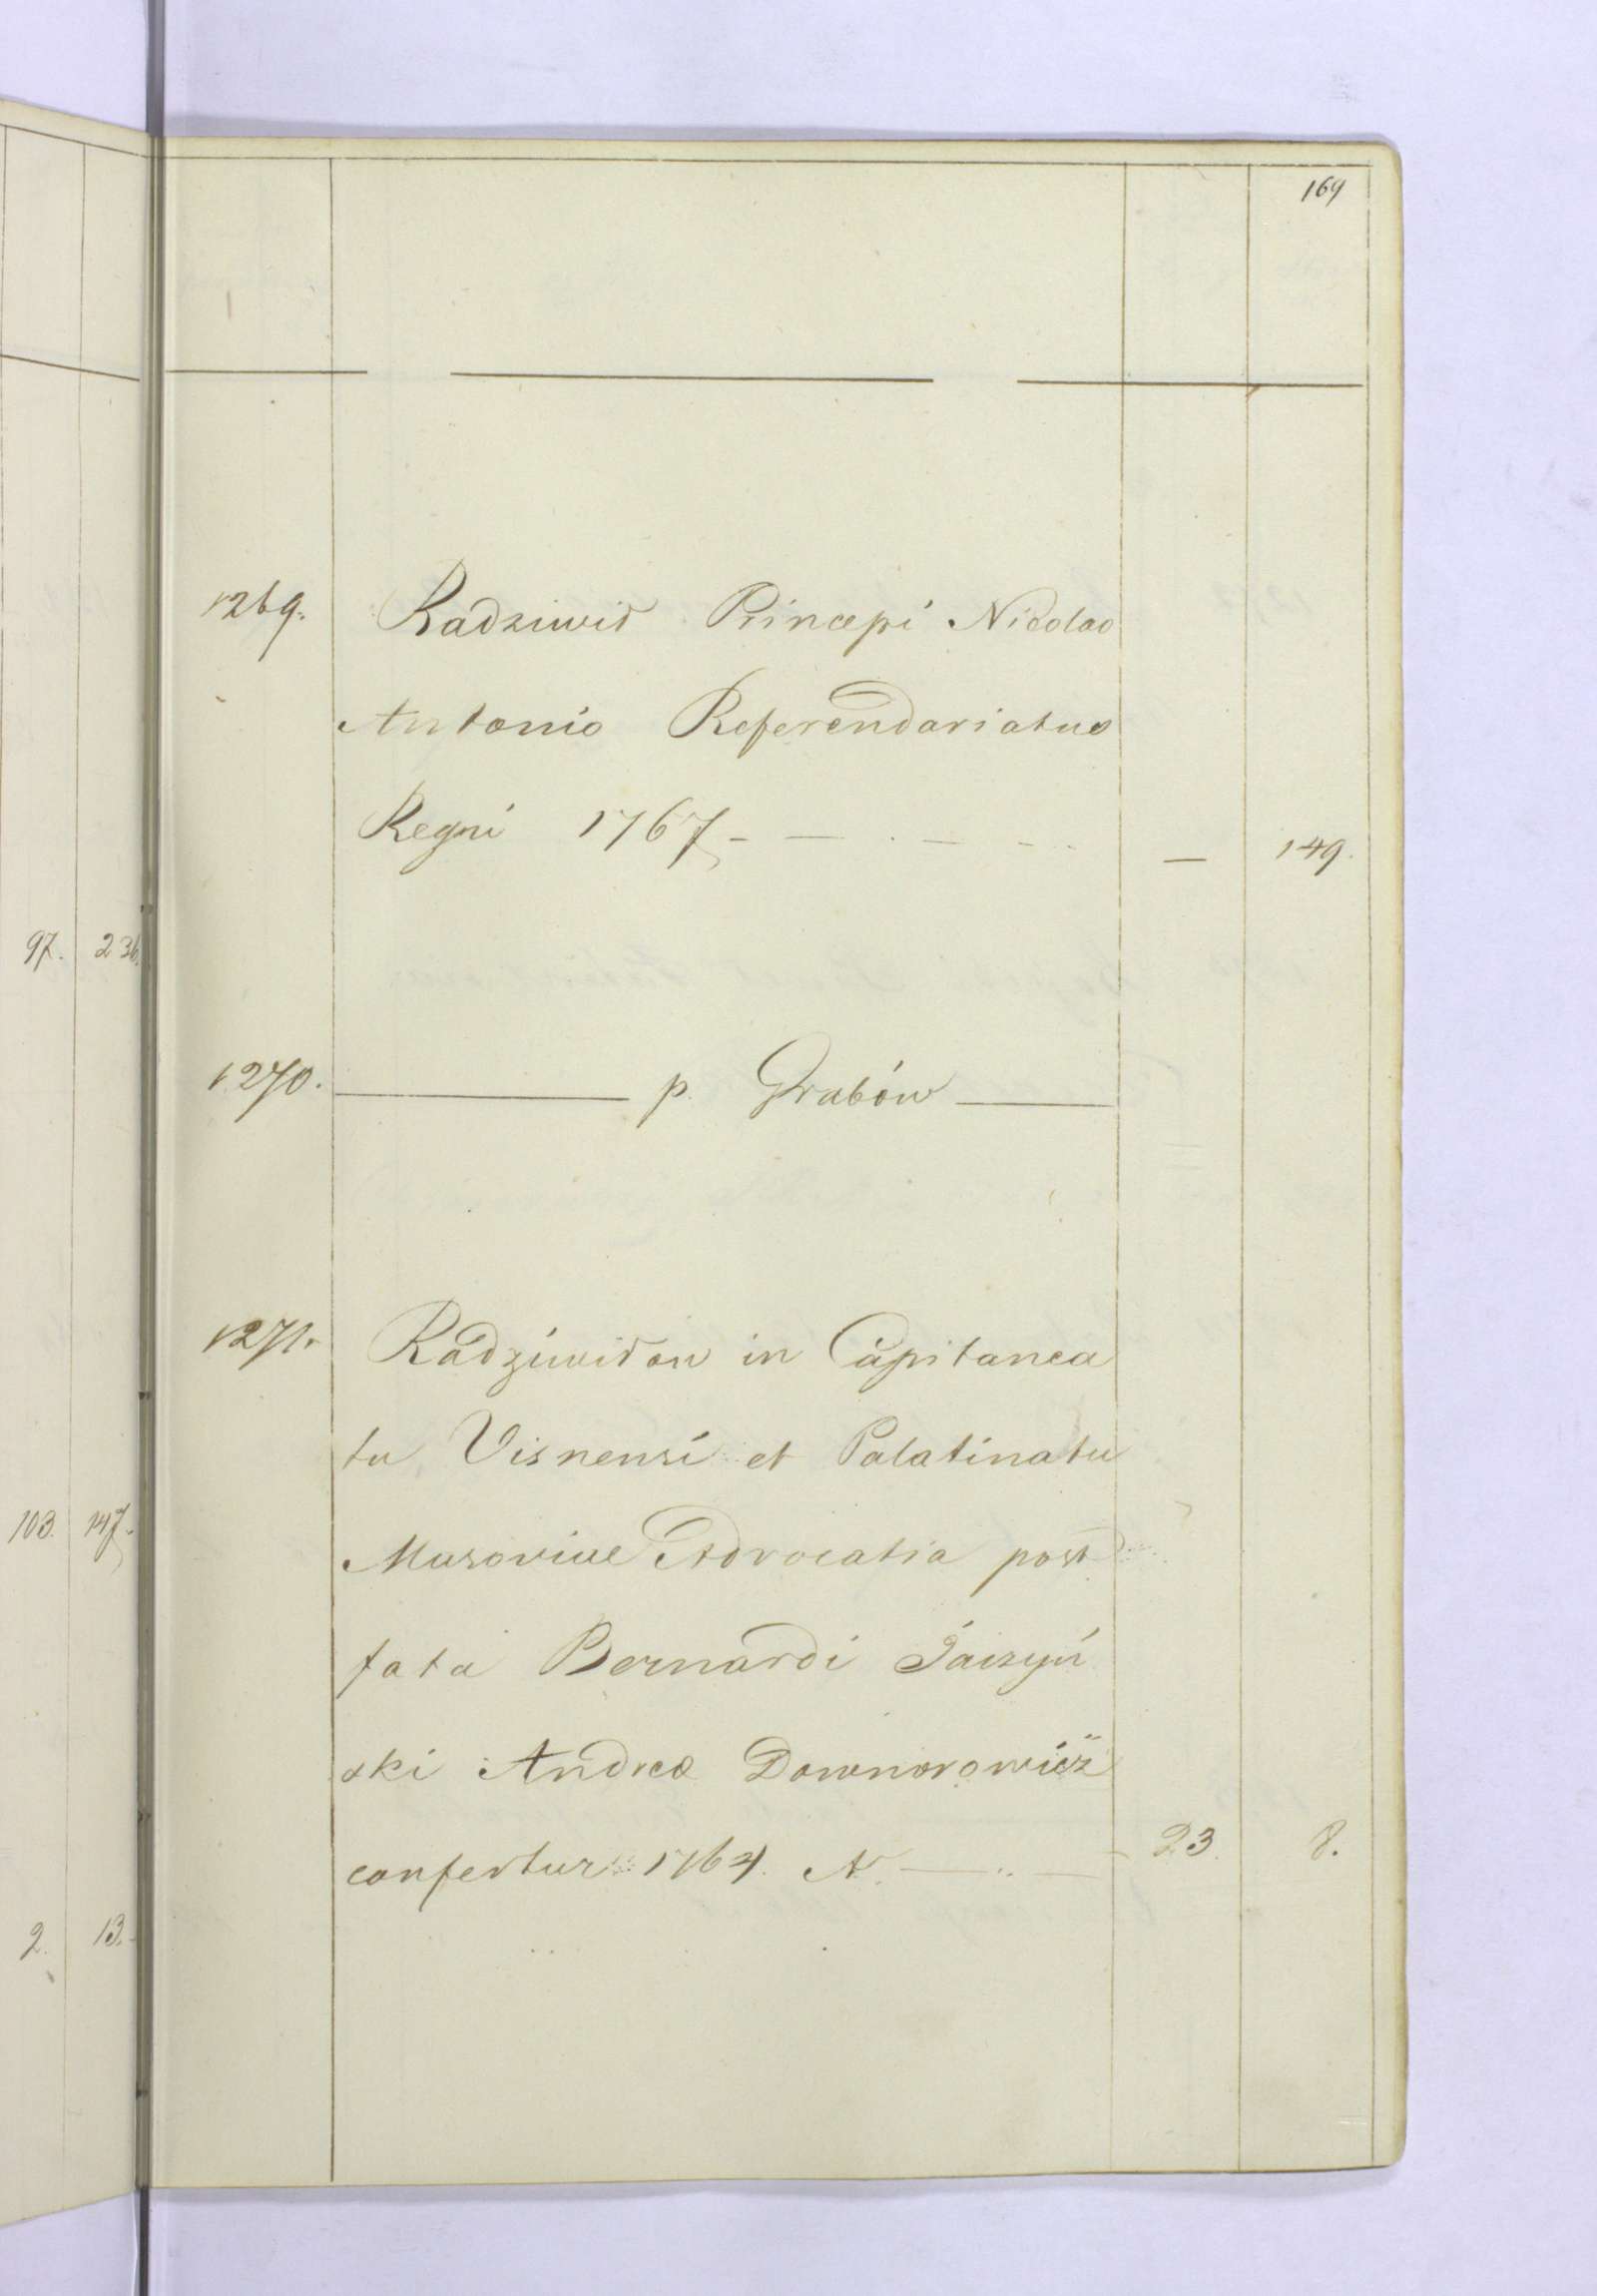 169
1269. Radziwił Principi Nicolao
Antonio Referendariatus
Regni 1767 - — . — - - . — 149.
97. 236.
1270. — p. Grabów —
1271. Radziwiłow in Capitanea
tu Visnensi et Palatinatu
103. 147.
Masoviae Advocatia post
fata Bernardi
ski Andreæ Downorowicz
confertur 1764. N. — 23. 8.
2. 13.